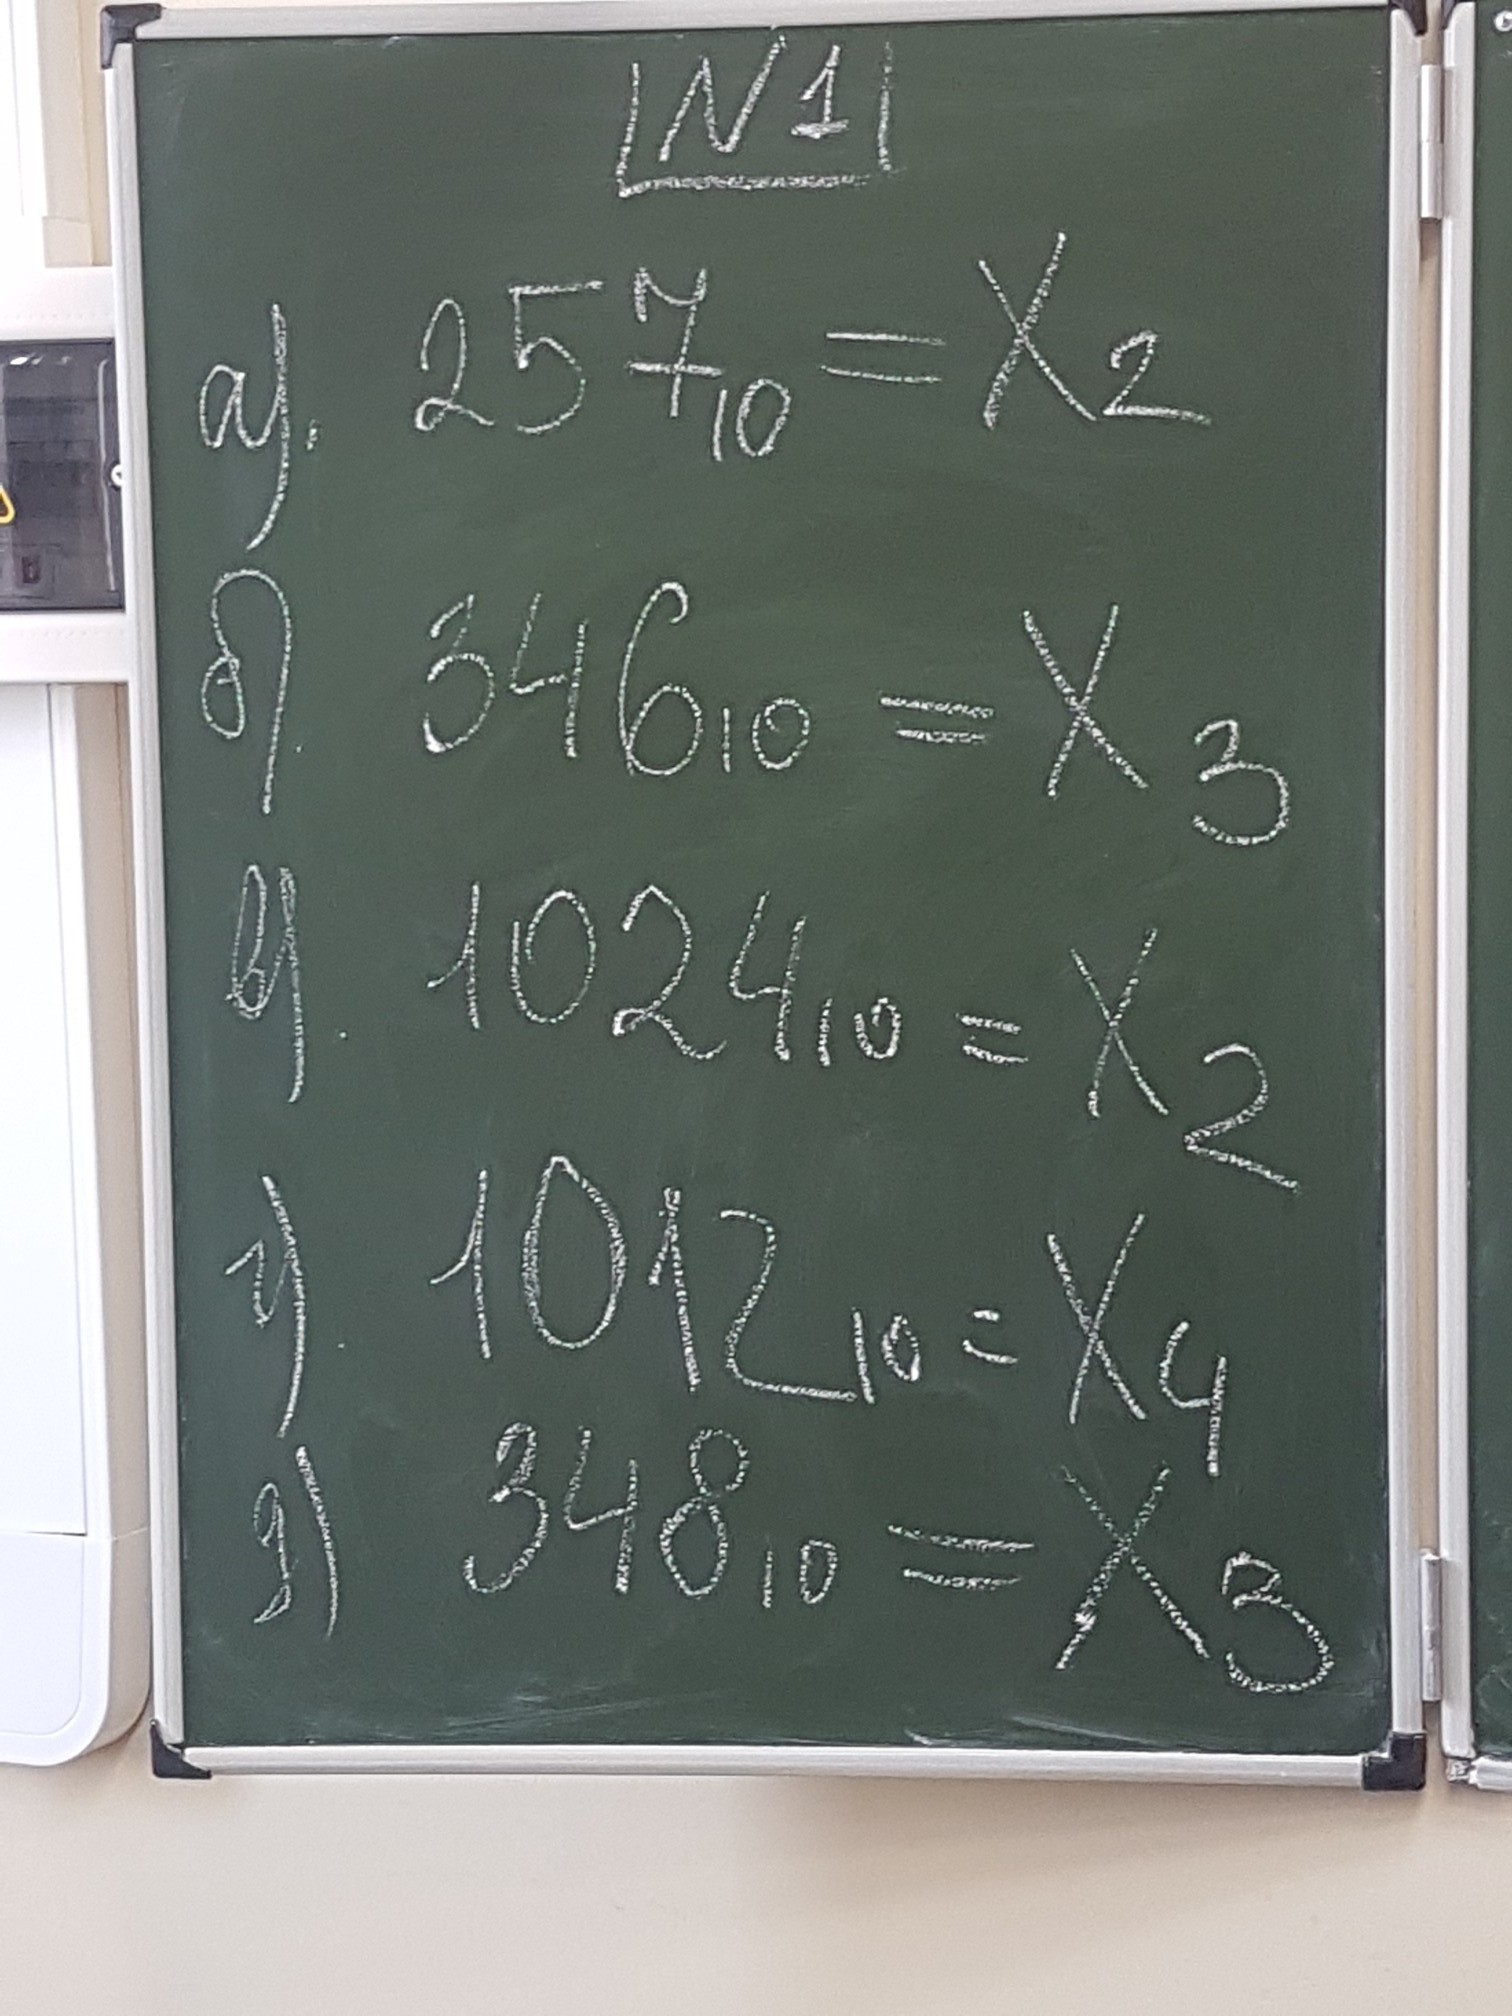 N1
а). 257₁₀ = X₂
б). 346₁₀ = X₃
в). 1024₁₀ = X₂
г). 1012₁₀ = X₄
д) 348₁₀ = X₃